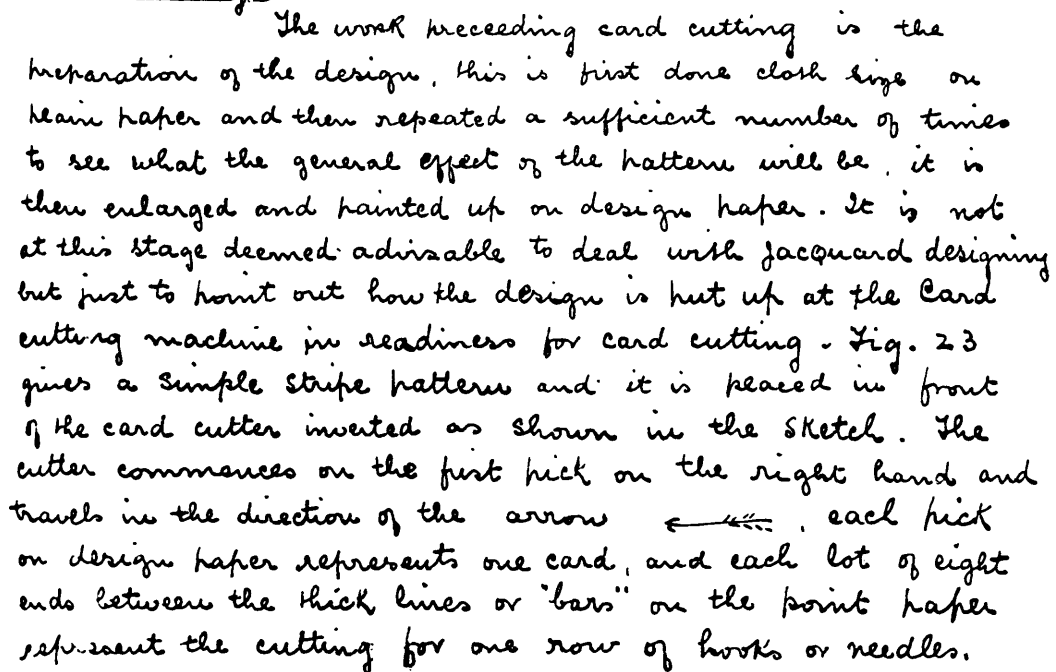 The work preceeding card cutting is the
preparation of the design, this is first done cloth size on
plain paper and then repeated a sufficient number of times
to see what the general effect of the pattern will be, it is
then enlarged and painted up on design paper. It is not
at this stage deemed advisable to deal with Jacquard designing
but just to point out how the design is put up at the Card
cutting machine in readiness for card cutting. Fig. 23
gives a simple stripe pattern and it is placed in front
of the card cutter inverted as shown in the sketch. The
cutter commences on the first pick on the right hand and
travels in the direction of the arrow ←, each pick
on design paper represents one card, and each lot of eight
ends between the thick lines or "bars" on the point paper
represent the cutting for one row of hooks or needles.